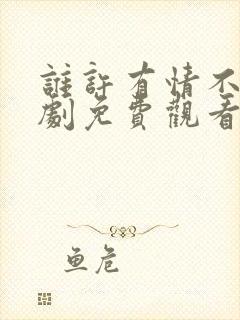 誰許有情不
劇免費觀看
鱼危